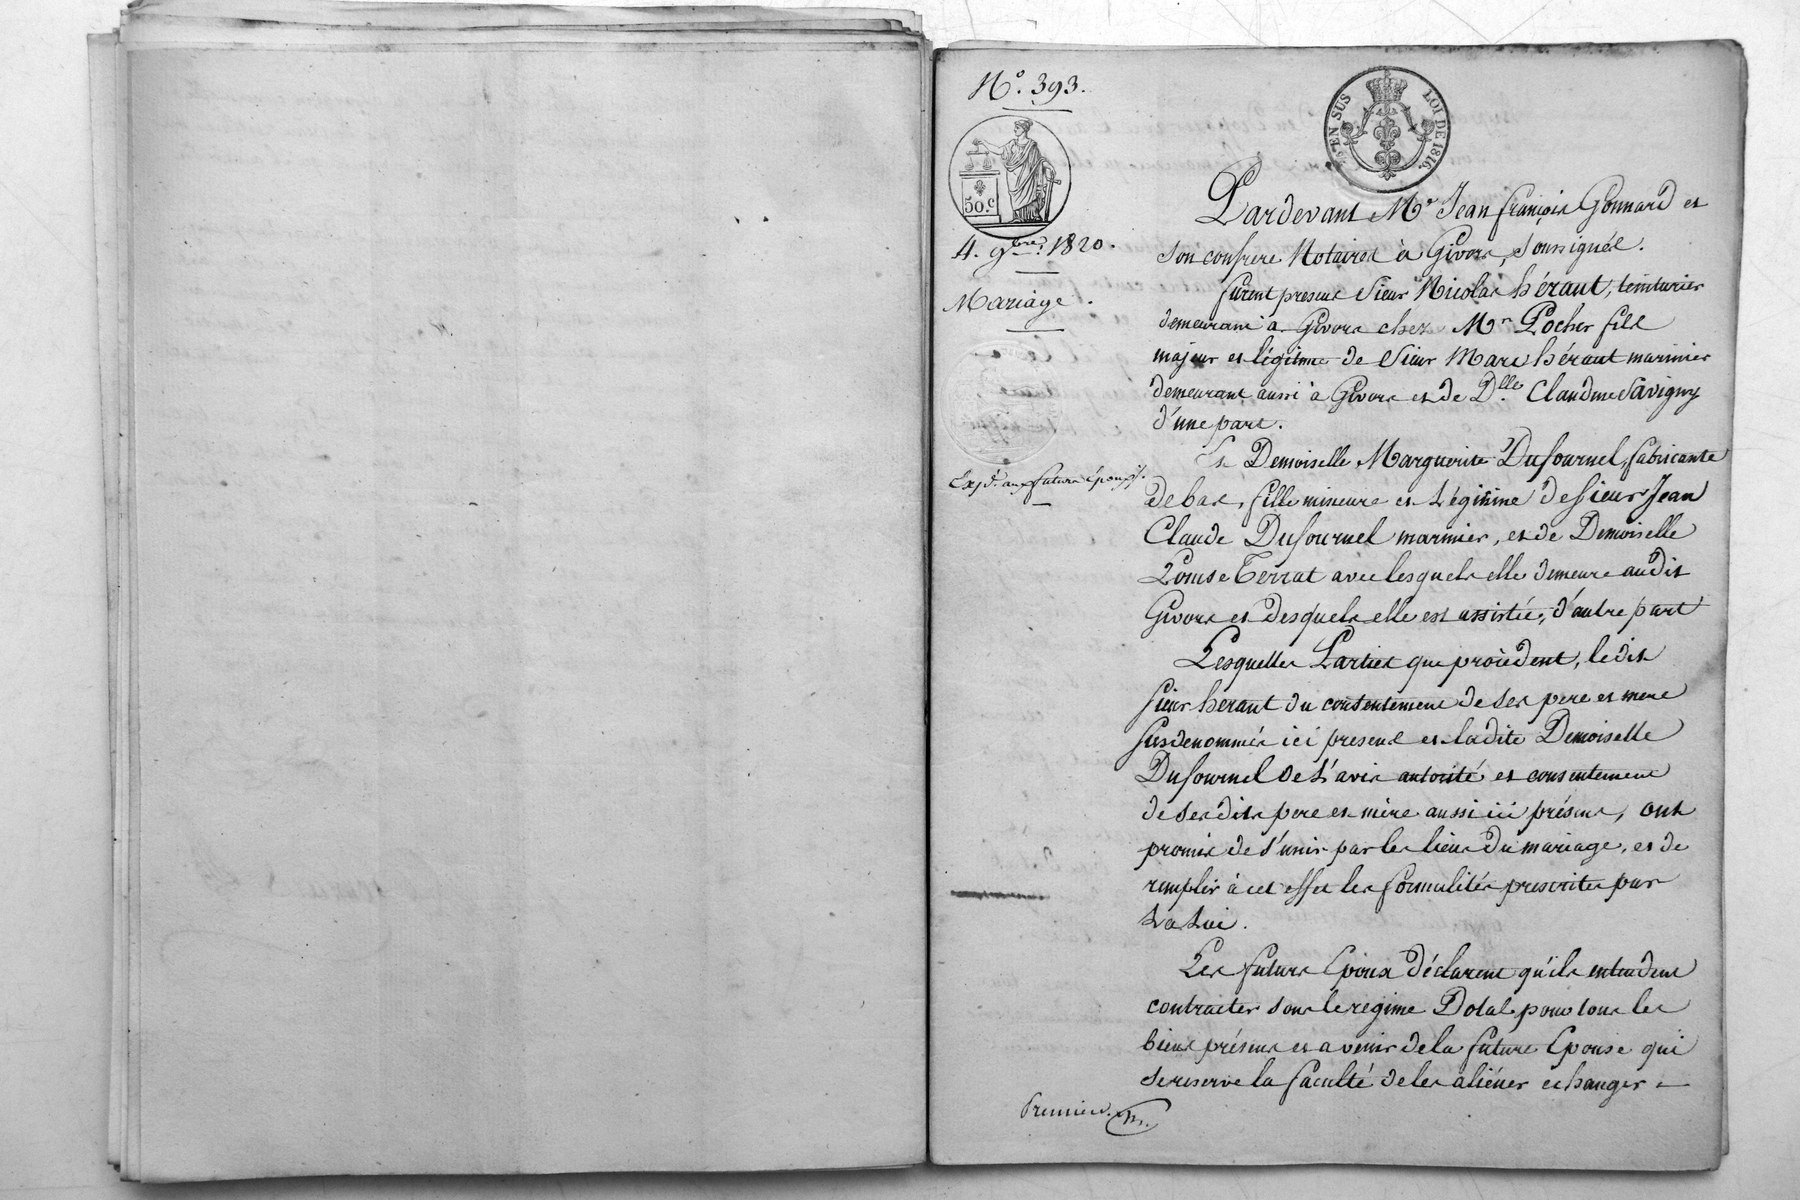 N.º 393.
EN SUS
LOI DE 1816.
50.c
4. 9bre. 1820.
Mariage.
Expd. aux futurs époux.
Pardevant Me. Jean françois Gonnard et
son confrere Notaires à Givors, soussignés.
furent presens Sieur Nicolas héraut, teinturier
demeurant à Givors chez Mr. Pocher fils
majeur et légitime de Sieur Marc héraut marinier
demeurant aussi à Givors et de Dlle. Claudine Savigny
d'une part.
Et Demoiselle Marguerite Dufournel, fabricante
de bas, fille mineure et Légitime de Sieur Jean
Claude Dufournel marinier, et de Demoiselle
Louise Terrat avec lesquels elle demeure audit
Givors et desquels elle est assistée, d'autre part
Lesquelles Parties que procèdent, le dit
Sieur héraut du consentement de ses pere et mere
susdenommés ici presens et ladite Demoiselle
Dufournel de l'avis autorité et consentement
de ses dits pere et mère aussi ici présens, ont
promis de s'unir par les liens du mariage, et de
remplir à cet effet les formalités prescrites par
La Loi.
Les futurs Epoux déclarent qu'ils entendent
contracter sous le régime Dotal pour tous les
biens présens et avenir de la future Epouse qui
se reserve la faculté de les aliéner echanger
Premiere.